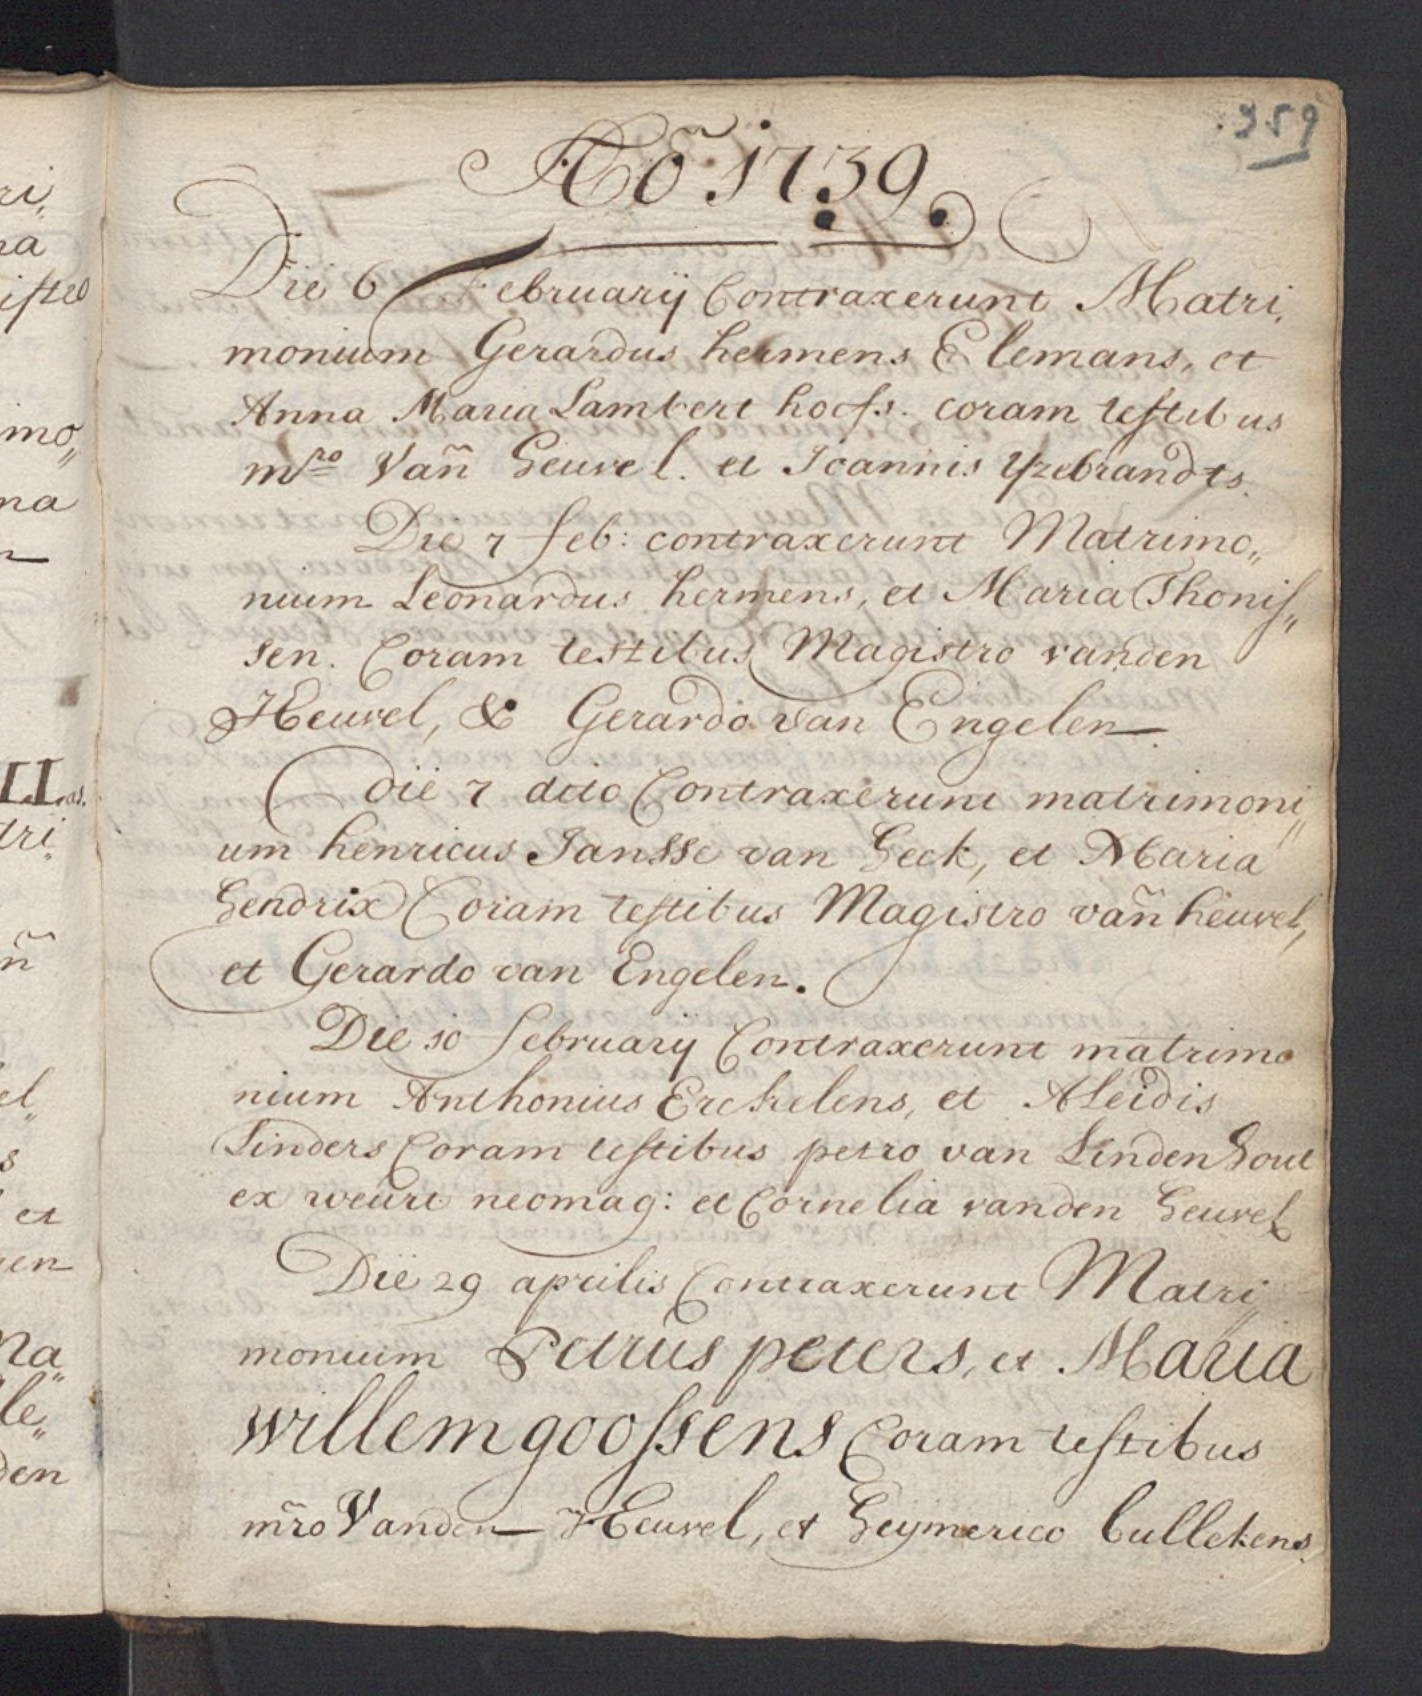 359
Aõ 1739.
Die 6 February Contraxerunt Matri,
monium Gerardus hermens Elemans, et
Anna Maria Lambert hoefs. coram testibus
mro Vañ Heuvel. et Joannis Yzebrandts.
Die 7 feb: contraxerunt Matrimo„
nium Leonardus hermens, et Maria Thonis„
sen. Coram testibus Magistro vanden
Heuvel, & Gerardo van Engelen
Die 7 dito Contraxerunt matrimoni„
um henricus Jansse van Heek, et Maria
Hendrix Coram testibus Magistro vañ heuvel,
et Gerardo van Engelen.
Die 10 february Contraxerunt matrimo
nium Anthonius Erckelens, et Aleidis
Linders Coram testibus petro van Linden Hout
ex weurt neomag: et Cornelia vanden Heuvel
Die 29 aprilis Contraxerunt Matri„
monium Petrus peters, et Maria
willem goossens Coram testibus
mr̃o Vanden Heuvel, et Heymerico bullekens.
ri,
ra
istel
imo„
na
LL as.
tri.
ñ
el„
s
et
en
na„
le„
den